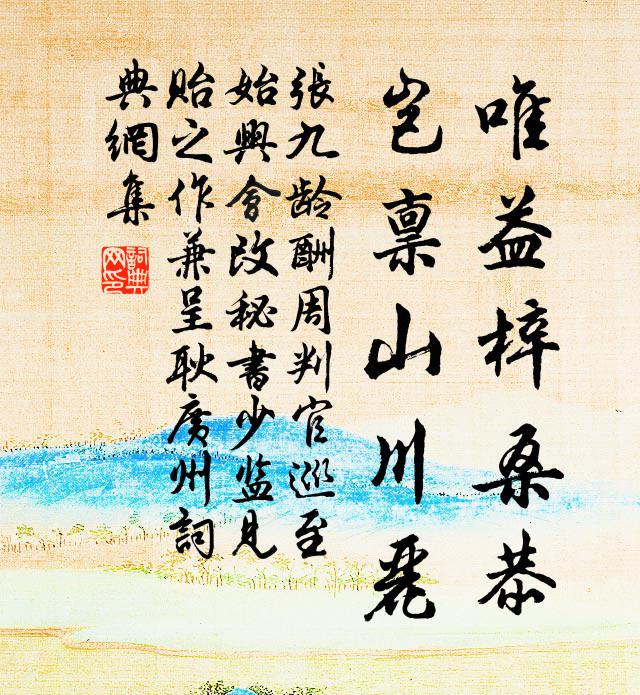 唯益梓桑恭
岂稟山川麗
張九龄酬周判官巡至
始興會改秘書少监見
貽之作兼呈耿廣州詞
典網集
詞典
网印